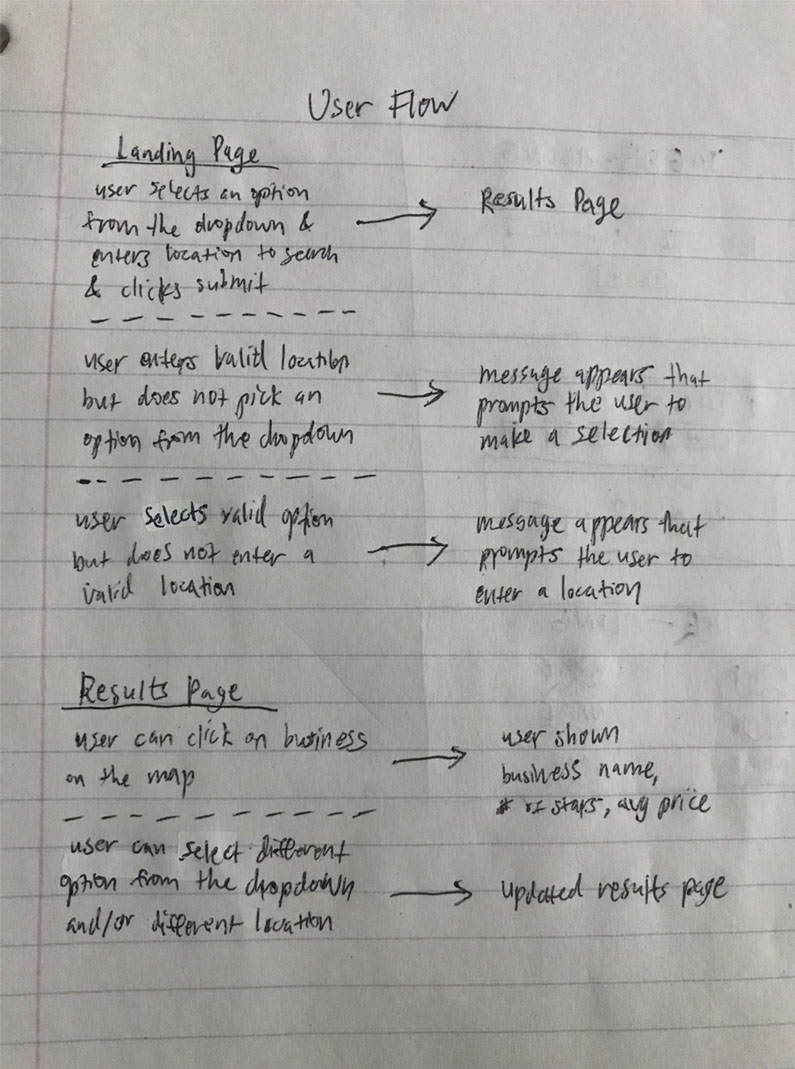 User Flow
Landing Page
user selects an option
from the dropdown &
enters location to search
& clicks submit
→ Results Page
user enters valid location
but does not pick an
option from the dropdown
→ message appears that
prompts the user to
make a selection
user selects valid option
but does not enter a
valid location
→ message appears that
prompts the user to
enter a location
Results Page
user can click on business
on the map
→ user shown
business name,
# of stars, avg price
user can select different
option from the dropdown
and/or different location
→ updated results page